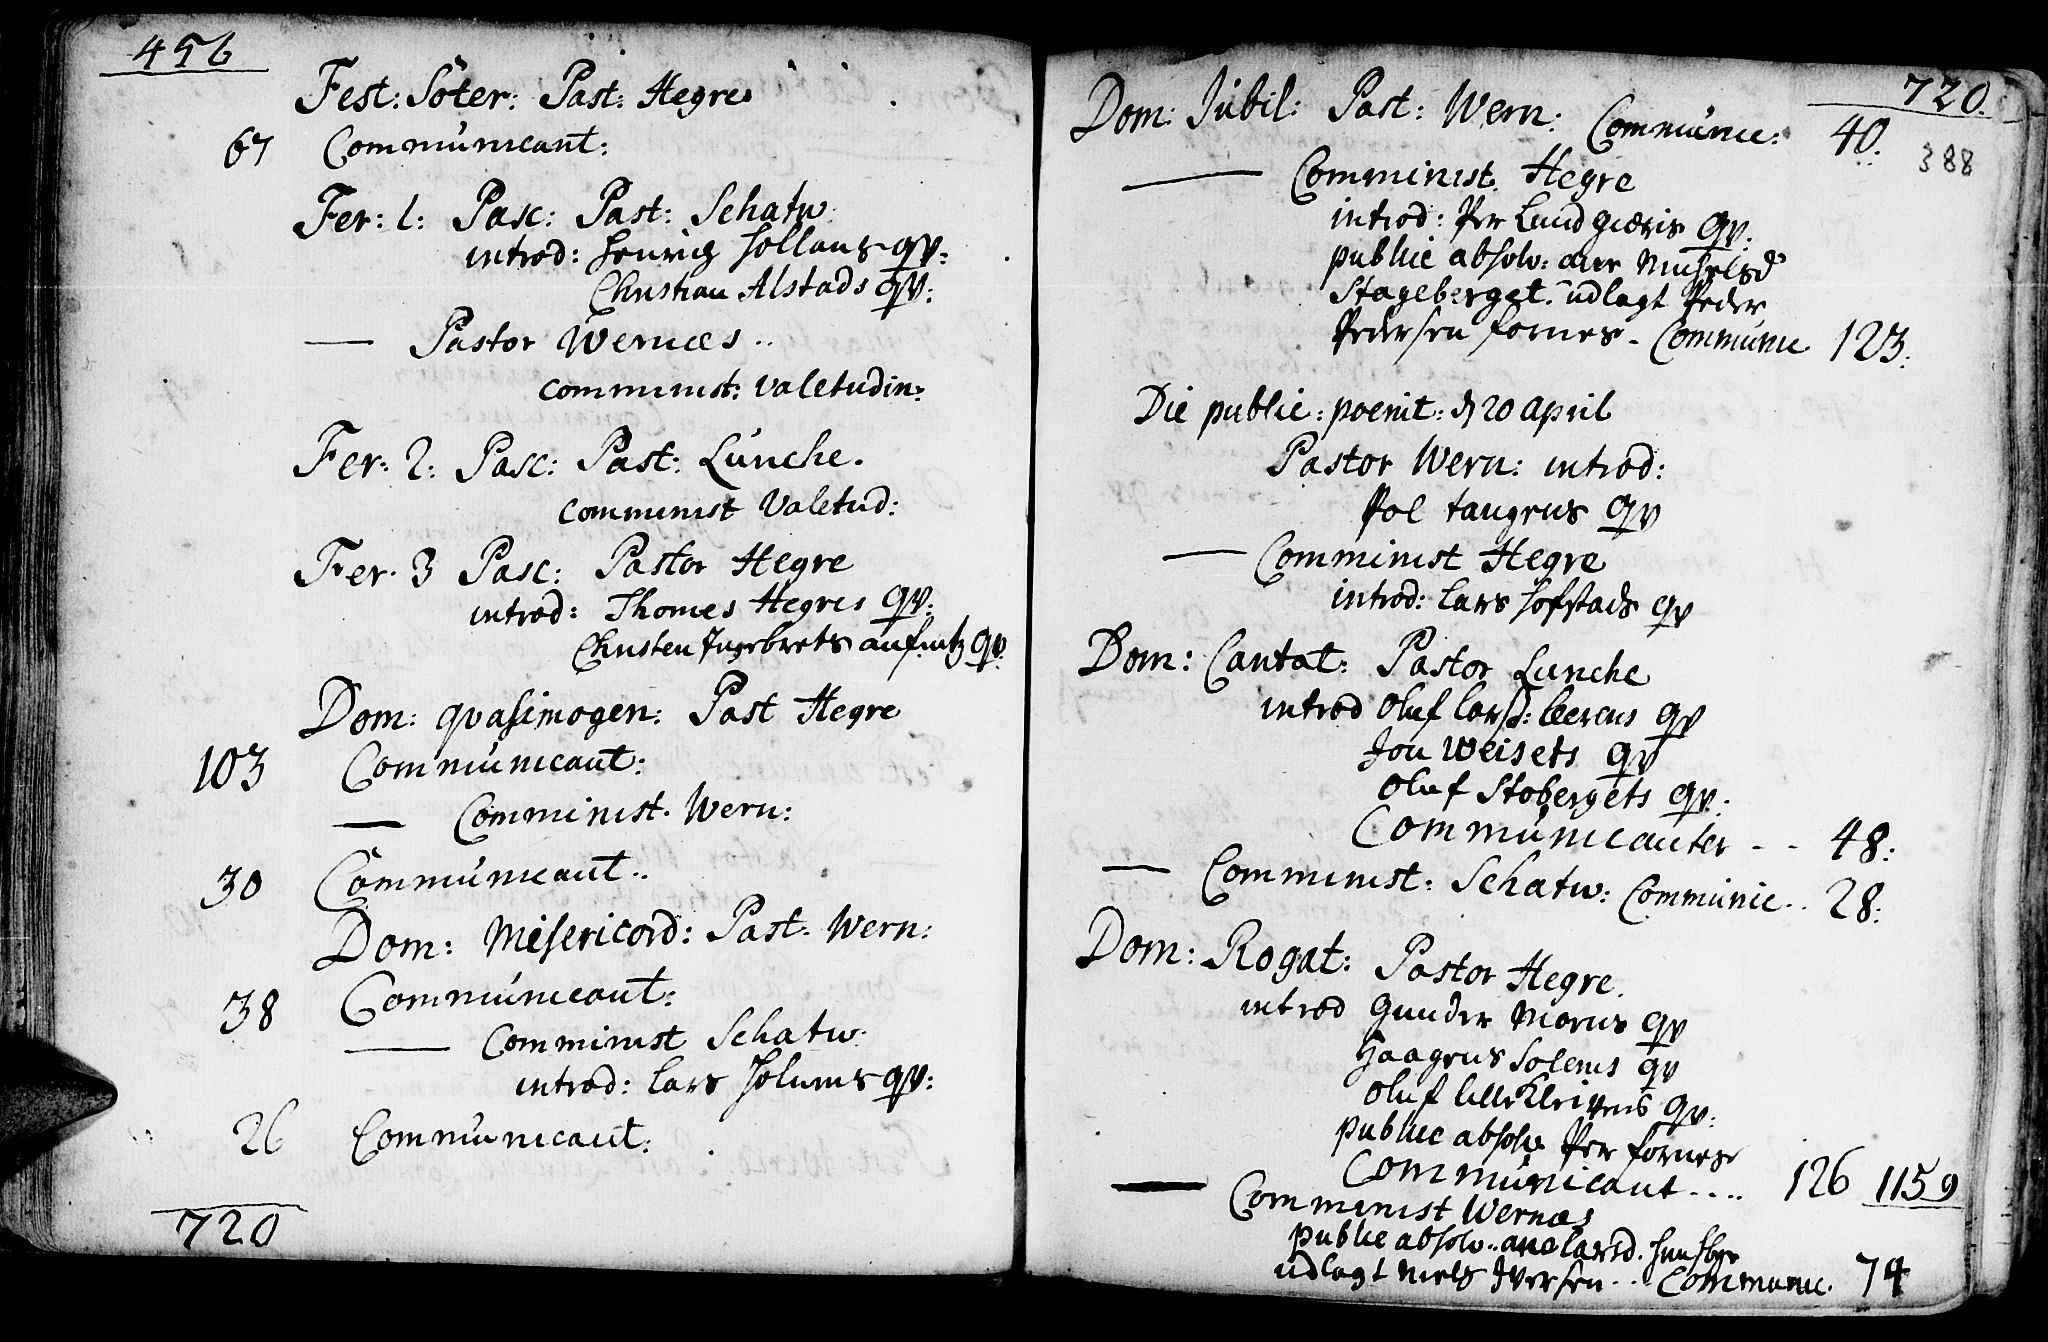 456
Fest: Söter: Past: Hegre
67 Communicant:
Fer: 1: Pasc: Past: Schatw:
introd: Henrich Hollans qv:
Christian Alstads qv:
— Pastor Wernæs ..
comminist: valetudin:
Fer: 2: Pasc: Past: Lunche.
comminist Valetud:
Fer. 3 Pasc: Pastor Hegre
introd: Thomes Hegres qv:
Christen Ingebrets qv:
Dom: qvasimogen: Past Hegre
103 Communicant:
— Comminist. Wern:
30 Communicant..
Dom: Misericord: Past. Wern:
38 Communicant:
— Comminist Schatw.
introd: Lars Holums qv:
26 Communicant:
720
720.
388
Dom: Jubil: Past: Wern: Communic: 40.
— Comminist. Hegre
introd: Per Lund qv:
public absolv:
Stageberget. udlagt Peder
Pedersen fornes - Communic 123.
Die public: poenit: d 20 April
Pastor Wern: introd:
Pol tangens qv
— Comminist Hegre
introd: Lars Hofstads qv
Dom: Cantat: Pastor Lunche
introd Oluf Larsd: leerens qv
Jon Weisets qv
Oluf Stobergets qv.
Communicanter - - 48:
— Comminist: Schatw: Communic.. 28:
Dom: Rogat: Pastor Hegre.
introd Gunder Morens qv
Haagens Solems qv
Oluf lilleKleivens qv.
public absolv Per fornes
Communicant .... 126 1159
— Comminist Wernæs
public absolv.. Larsd.
udlagt Niels Iversen .. Communic. 74